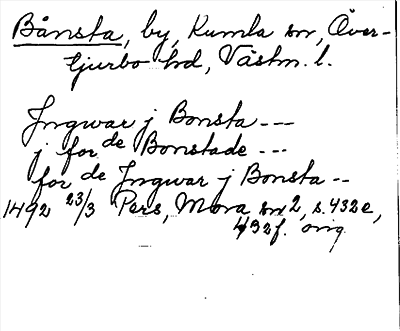 Bånsta, by, Kumla sn, Över-
tjurbo hd, Västm. l.
Ingwar j Bonsta ---
j for de Bonstade ---
for de Ingwar j Bonsta --
1492 23/3 Pers, Mora sn 2, s. 432e,
432f. orig.